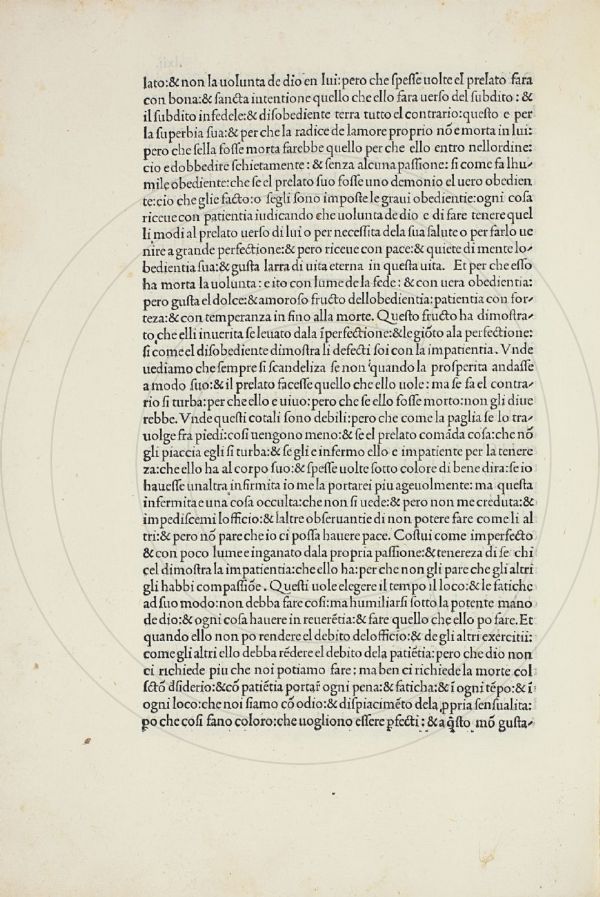 lato:& non la uolunta de dio en lui: pero che ſpeſſe uolte el prelato fara
con bona:& ſancta intentione quello che ello fara uerſo del ſubdito: &
il ſubdito infedele:& diſobediente terra tutto el contrario:queſto e per
la ſuperbia ſua:& per che la radice de lamore proprio nõ e morta in lui:
pero che ſella foſſe morta farebbe quello per che ello entro nellordine:
cio e dobbedire ſchietamente: & ſenza alcuna paſſione: ſi come fa lhu⸗
mile obediente:che ſe el prelato ſuo foſſe uno demonio el uero obedien
te:cio che glie facto:o ſegli ſono impoſte le graui obedientie:ogni coſa
riceue con patientia iudicando che uolunta de dio e di fare tenere quel
li modi al prelato uerſo di lui o per neceſſita dela ſua ſalute o per farlo ue
nire a grande perfectione:& pero riceue con pace:& quiete di mente lo⸗
bedientia ſua:& guſta larra di uita eterna in queſta uita. Et per che eſſo
ha morta la uolunta: e ito con lume de la fede: & con uera obedientia:
pero guſta el dolce:& amoroſo fructo dellobedientia: patientia con for⸗
teza:& con temperanza in fino alla morte. Queſto fructo ha dimoſtra⸗
to,che elli inuerita ſe leuato dala ĩperfectione:& le giõto ala perfectione:
ſi come el diſobediente dimoſtra li defecti ſoi con la impatientia. Vnde
uediamo che ſempre ſi ſcandeliza ſe non quando la proſperita andaſſe
a modo ſuo:& il prelato faceſſe quello che ello uole: ma ſe fa el contra⸗
rio ſi turba:per che ello e uiuo:pero che ſe ello foſſe morto:non gli diue
rebbe. Vnde queſti cotali ſono debili:pero che come la paglia ſe lo tra⸗
uolge fra piedi:coſi uengono meno:& ſe el prelato comãda coſa:che nõ
gli piaccia egli ſi turba:& ſe gli e infermo ello e impatiente per la tenere
za:che ello ha al corpo ſuo:& ſpeſſe uolte ſotto colore di bene dira:ſe io
haueſſe unaltra infirmita io me la portarei piu ageuolmente: ma queſta
infermita e una coſa occulta:che non ſi uede:& pero non me creduta:&
impediſcemi lofficio:& laltre obſeruantie di non potere fare come li al
tri:& pero nõ pare che io ci poſſa hauere pace. Coſtui come imperfecto
& con poco lume e inganato dala propria paſſione:& tenereza di ſe chi
cel dimoſtra la impatientia:che ello ha:per che non gli pare che gli altri
gli habbi compaſſiõe. Queſti uole elegere il tempo il loco:& le fatiche
ad ſuo modo:non debba fare coſi:ma humiliarſi ſotto la potente mano
de dio:& ogni coſa hauere in reuerẽtia:& fare quello che ello po fare. Et
quando ello non po rendere el debito delofficio:& de gli altri exercitii:
come gli altri ello debba rẽdere el debito dela patiẽtia:pero che dio non
ci richiede piu che noi potiamo fare: ma ben ci richiede la morte col
ſctõ dſiderio:&cõ patiẽtia portar̃ ogni pena:& faticha:& ĩ ogni tẽpo:& ĩ
ogni loco:che noi ſiamo cõ odio:& diſpiacimẽto dela ꝓpria ſenſualita:
ꝑo che coſi fano coloro:che uogliono eſſere ꝑfecti: & a q̃ſto mõ guſta⸗